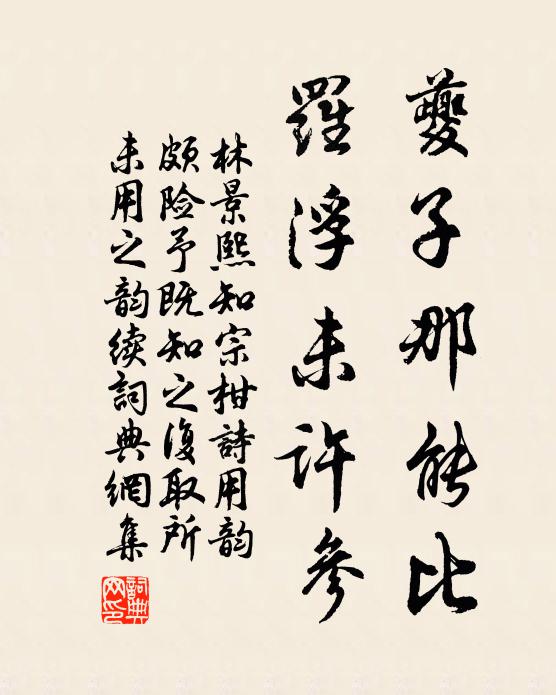 夔子那能比
羅浮未許參
林景熙知宗柑詩用韵
頗险予既知之復取所
未用之韵續詞典網集
詞典网印